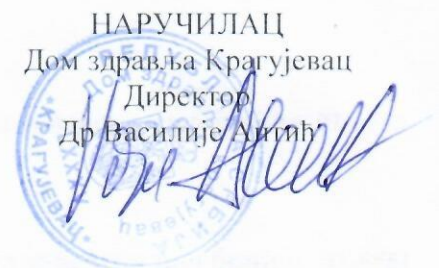 НАРУЧИЛАЦ
Дом здравља Крагујевац
Директор
Др Василије Антић